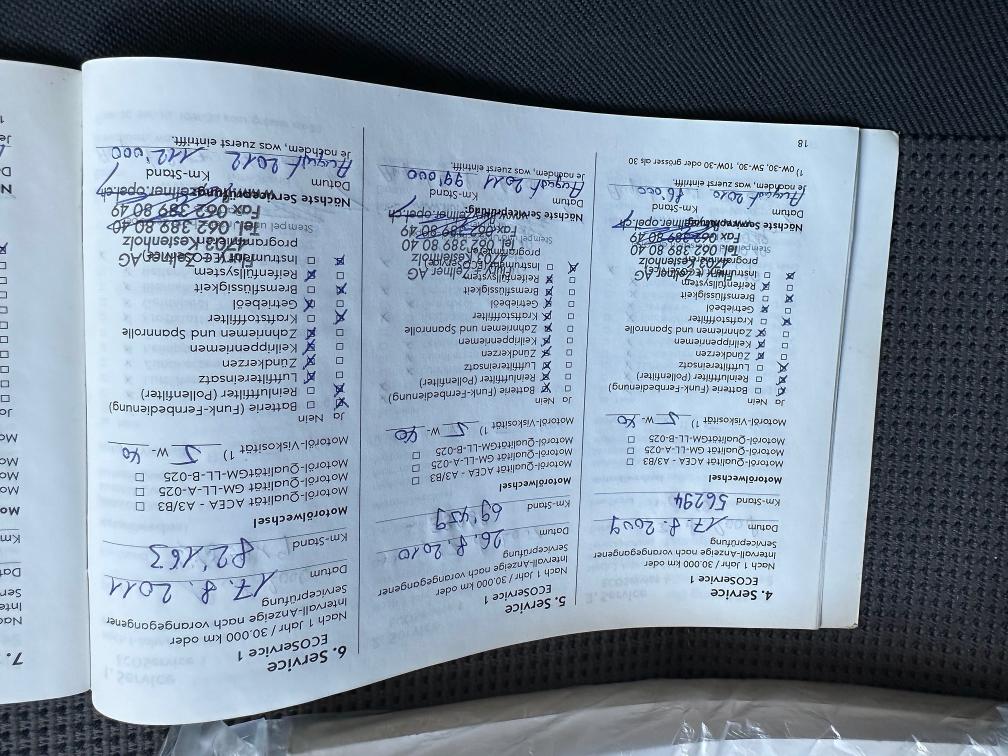 4. Service
ECOService 1
Nach 1 Jahr / 30.000 km oder
Intervall-Anzeige nach vorangegangener
Serviceprüfung
17.8.2009
Datum
56294
Km-Stand
Motorölwechsel
Motoröl-Qualität ACEA - A3/B3
Motoröl-Qualität GM-LL-A-025
Motoröl-QualitätGM-LL-B-025
Motoröl-Viskosität 1) 5 W- 40
Ja Nein
Batterie (Funk-Fernbedienung)
Reinluftfilter (Pollenfilter)
Luftfiltereinsatz
Zündkerzen
Keilrippenriemen
Zahnriemen und Spannrolle
Kraftstofffilter
Getriebeöl
Bremsflüssigkeit
Reifenfüllsystem
Instrument (ECOService)
programmieren
Flury + Zellner AG
4703 Kestenholz
Tel. 062 389 80 40
Fax 062 389 80 49
www.zellner.opel.ch
Nächste Serviceprüfung:
Datum Km-Stand
August 2010 86000
Je nachdem, was zuerst eintrifft.
1) 0W-30, 5W-30, 10W-30 oder grösser als 30
18
5. Service
ECOService 1
Nach 1 Jahr / 30.000 km oder
Intervall-Anzeige nach vorangegangener
Serviceprüfung
26.8.2010
Datum
69'459
Km-Stand
Motorölwechsel
Motoröl-Qualität ACEA - A3/B3
Motoröl-Qualität GM-LL-A-025
Motoröl-QualitätGM-LL-B-025
Motoröl-Viskosität 1) 5 W- 40
Ja Nein
Batterie (Funk-Fernbedienung)
Reinluftfilter (Pollenfilter)
Luftfiltereinsatz
Zündkerzen
Keilrippenriemen
Zahnriemen und Spannrolle
Kraftstofffilter
Getriebeöl
Bremsflüssigkeit
Reifenfüllsystem
Instrument (ECOService)
programmieren
Flury + Zellner AG
4703 Kestenholz
Tel. 062 389 80 40
Fax 062 389 80 49
www.zellner.opel.ch
Nächste Serviceprüfung:
Datum Km-Stand
August 2011 99'000
Je nachdem, was zuerst eintrifft.
6. Service
ECOService 1
Nach 1 Jahr / 30.000 km oder
Intervall-Anzeige nach vorangegangener
Serviceprüfung
17.8.2011
Datum
82'163
Km-Stand
Motorölwechsel
Motoröl-Qualität ACEA - A3/B3
Motoröl-Qualität GM-LL-A-025
Motoröl-QualitätGM-LL-B-025
Motoröl-Viskosität 1) 5 W- 40
Ja Nein
Batterie (Funk-Fernbedienung)
Reinluftfilter (Pollenfilter)
Luftfiltereinsatz
Zündkerzen
Keilrippenriemen
Zahnriemen und Spannrolle
Kraftstofffilter
Getriebeöl
Bremsflüssigkeit
Reifenfüllsystem
Instrument (ECOService)
programmieren
Flury + Zellner AG
4703 Kestenholz
Tel. 062 389 80 40
Fax 062 389 80 49
www.zellner.opel.ch
Nächste Serviceprüfung:
Datum Km-Stand
August 2012 112'000
Je nachdem, was zuerst eintrifft.
7.